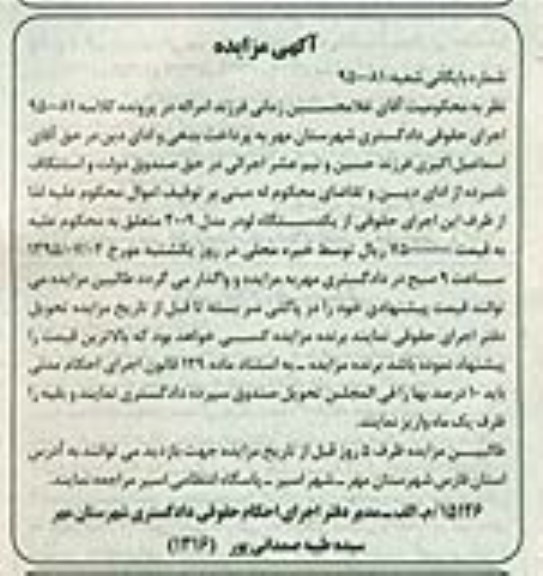 آگهی مزایده
شماره بایگانی شعبه: ۹۵۰۰۸۱
نظر به محکومیت آقای غلامحسین زمانی فرزند امراله در پرونده کلاسه ۹۵۰۰۸۱
اجرای حقوقی دادگستری شهرستان مهر به پرداخت بدهی و ادای دین در حق آقای
اسماعیل اکبری فرزند حسین و نیم عشر اجرائی در حق صندوق دولت و استنکاف
نامبرده از ادای دین و تقاضای محکوم له مبنی بر توقیف اموال محکوم علیه لذا
از طرف این اجرای حقوقی از یکدستگاه لودر مدل ۲۰۰۹ متعلق به محکوم علیه
به قیمت ریال توسط خبره محلی در روز یکشنبه مورخ
ساعت ۹ صبح در دادگستری مهر به مزایده و واگذار می گردد طالبین مزایده می
توانند قیمت پیشنهادی خود را در پاکتی سر بسته تا قبل از تاریخ مزایده تحویل
دفتر اجرای حقوقی نمایند برنده مزایده کسی خواهد بود که بالاترین قیمت را
پیشنهاد نموده باشد برنده مزایده ـ به استناد ماده ۱۲۹ قانون اجرای احکام مدنی
باید ۱۰ درصد بها را فی المجلس تحویل صندوق سپرده دادگستری نمایند و بقیه را
ظرف یک ماه واریز نمایند.
طالبین مزایده ظرف ۵ روز قبل از تاریخ مزایده جهت بازدید می توانند به آدرس
استان فارس شهرستان مهر ـ شهر اسیر ـ پاسگاه انتظامی اسیر مراجعه نمایند.
۱۵۱۲۶/م الف ـ مدیر دفتر اجرای احکام حقوقی دادگستری شهرستان مهر
سیده طیبه صمدانی پور (۱۳۱۶)